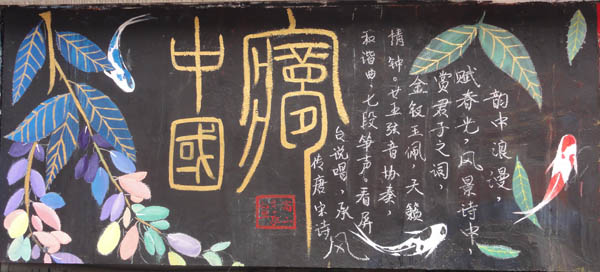 中國
夢
韵中浪漫，
赋春光，风景诗中，
赏君子之词，
金钗玉佩，天籁
情钟。廿五弦音协奏，
和谐曲，七段筝声。看屏
台说唱，承
传唐宋诗
风